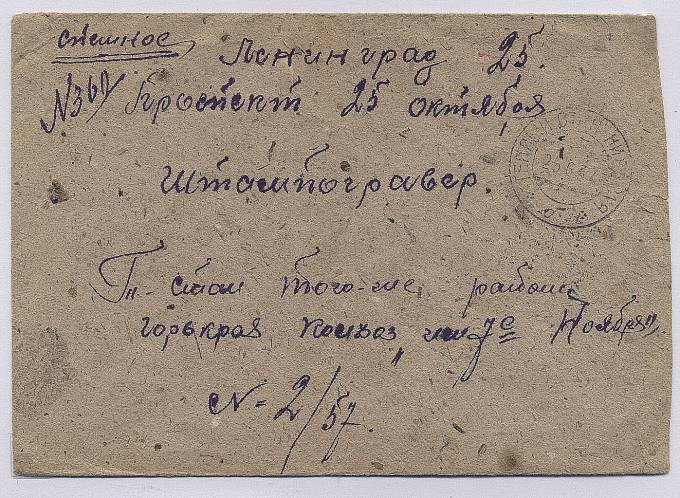 спешное
Ленинград 25.
№369
Проспект 25 октября
Штампогравер.
того-же района
горькрая Колхоз "7е Ноября".
N-2/57.